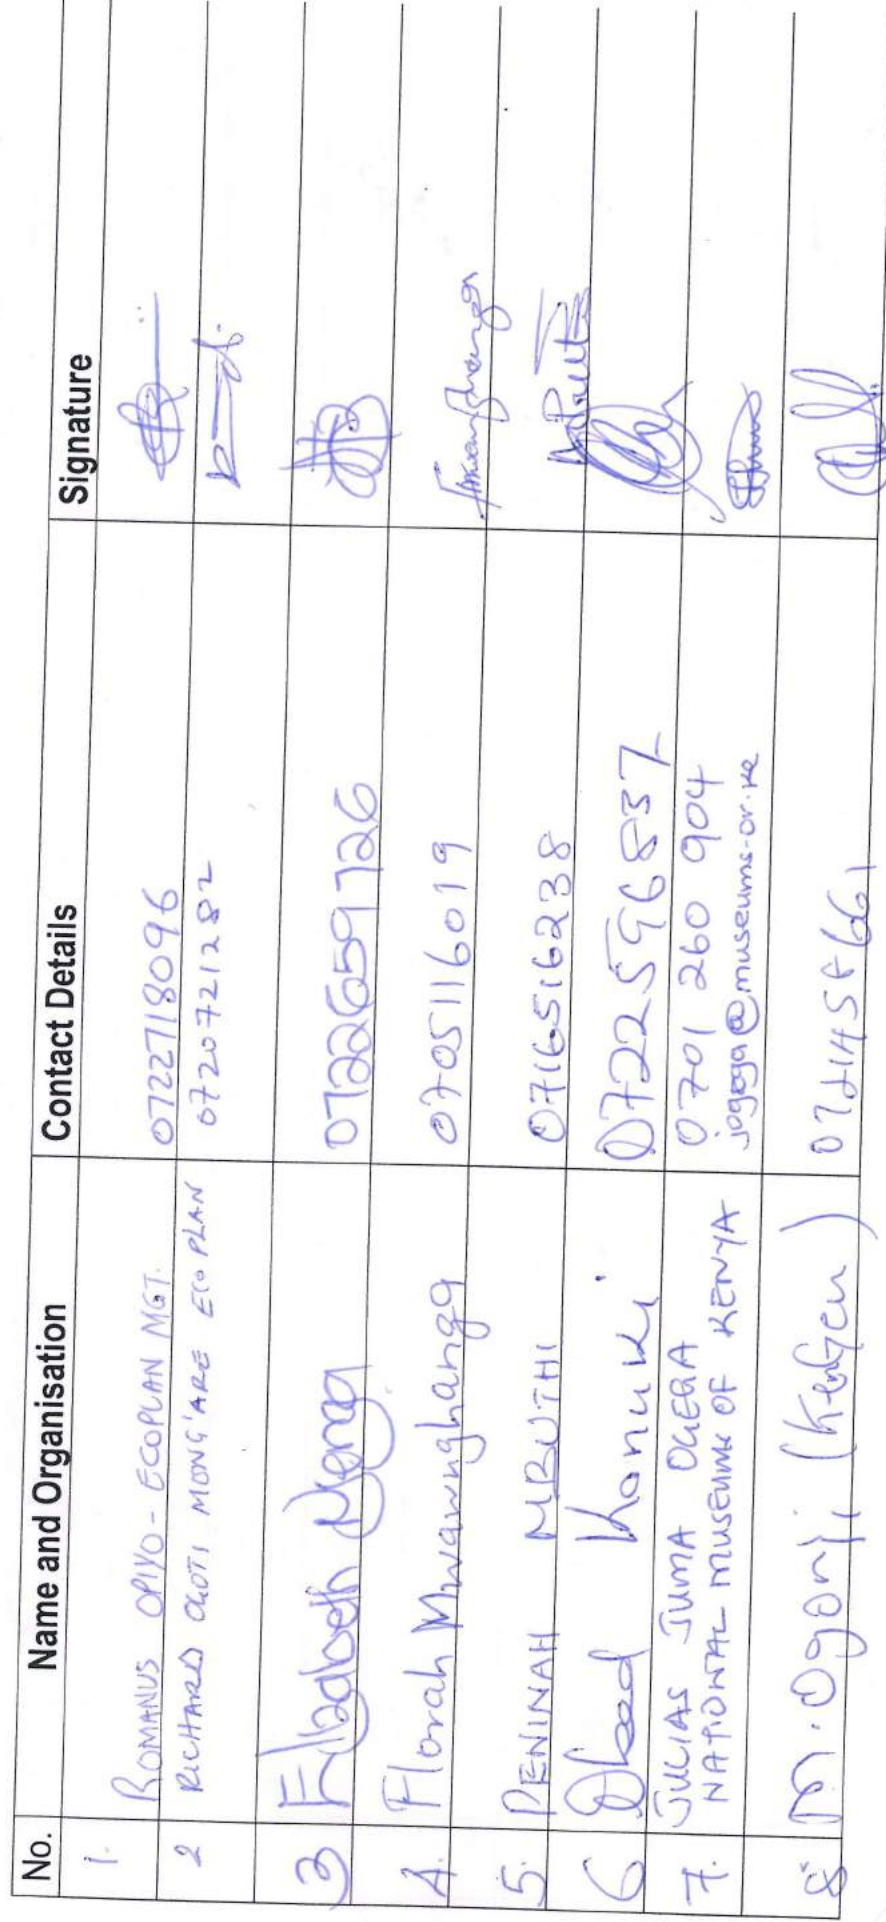 No. Name and Organisation Contact Details Signature
1. ROMANUS OPIYO - ECOPLAN MGT. 0722718096
2 RICHARD OKOTI MONG'ARE ECO PLAN 0720721282
3 Elizabeth 0722659726
4. Florah Mwawughanga 0705116019
5. PENINAH MBUTHI 0716516238
6 Obed Konuki 0722596837
7. JULIAS JUMA OGEGA 0701 260 904
NATIONAL MUSEUMS OF KENYA jogega@museums.or.ke
8. M. Ogonji (KenGen)